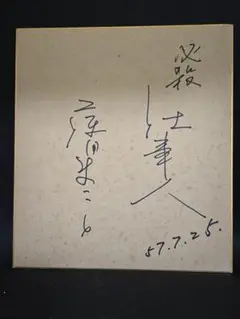 必殺
仕事人
藤田まこと
57.7.25.